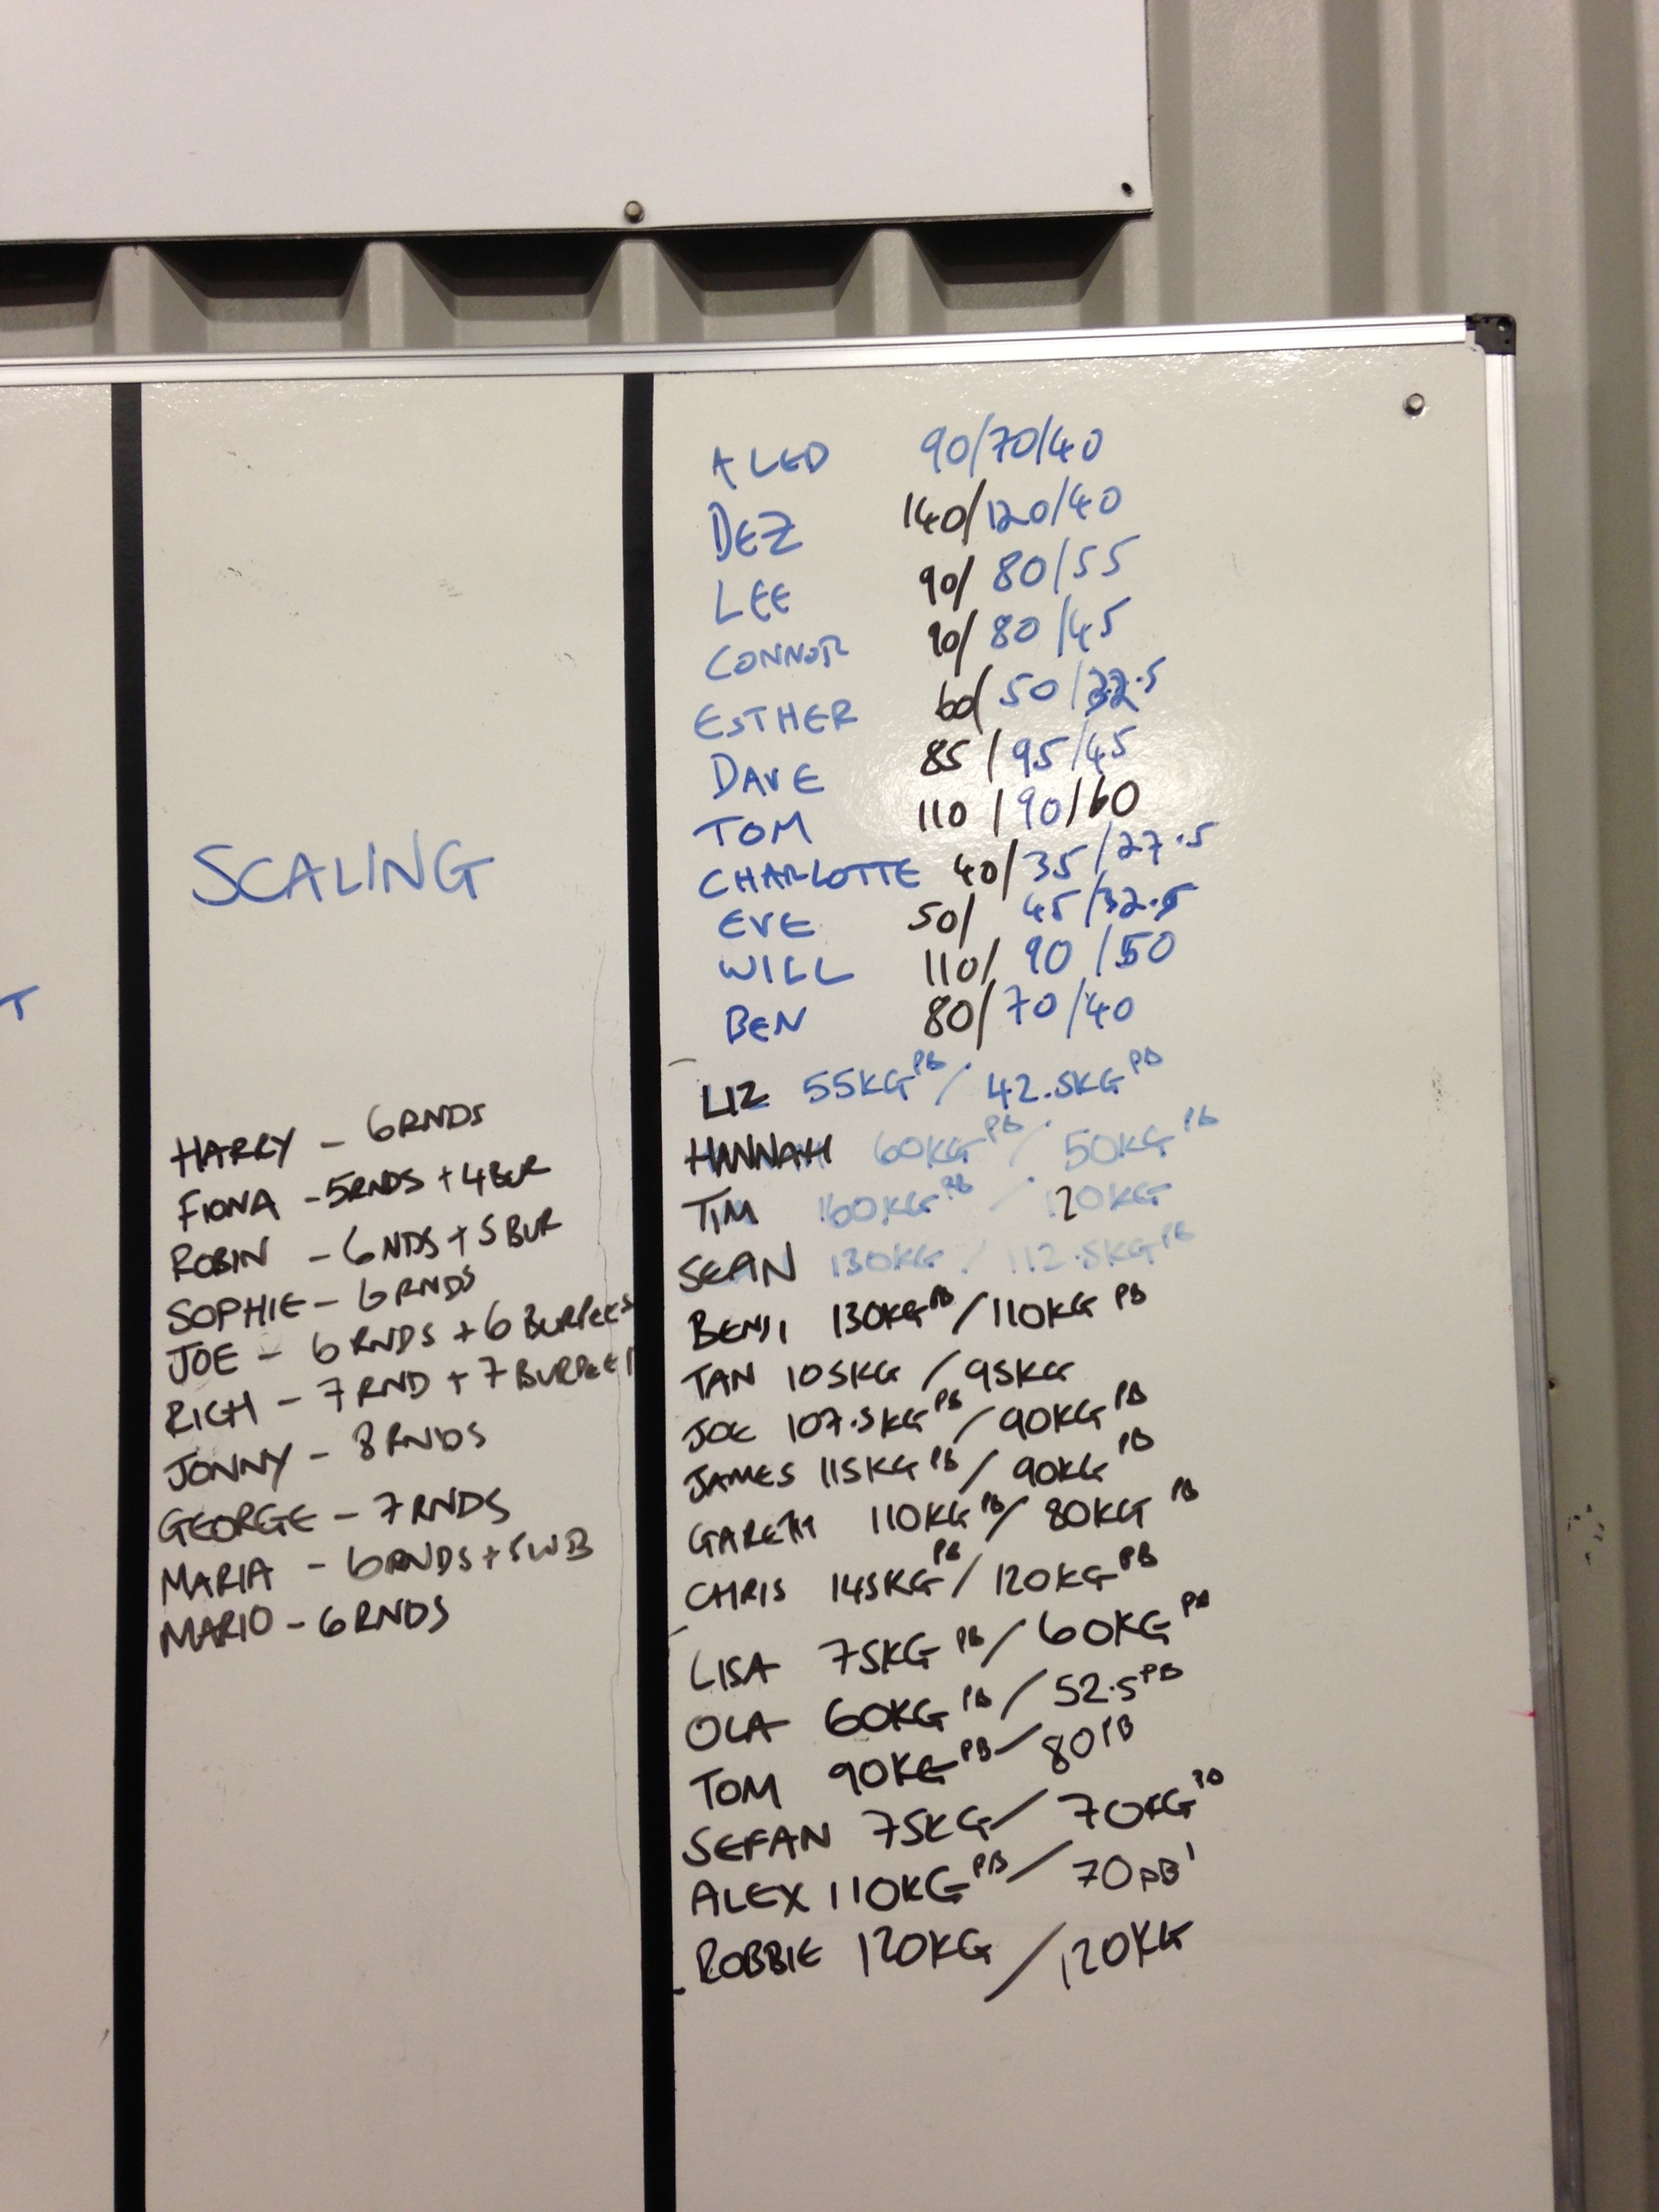 T
SCALING
HARRY - 6RNDS
FIONA - 5RNDS + 4BUR
ROBIN - 6NDS + 5BUR
SOPHIE - 6RNDS
JOE - 6RNDS + 6 BURPEES
RICH - 7RND + 7 BURPEE
JONNY - 8RNDS
GEORGE - 7RNDS
MARIA - 6RNDS + 5WB
MARIO - 6RNDS
ALED 90/70/40
DEZ 140/120/40
LEE 90/80/55
CONNOR 90/80/45
ESTHER 60/50/32.5
DAVE 85/95/45
TOM 110/90/60
CHARLOTTE 40/35/27.5
EVE 50/45/32.5
WILL 110/90/50
BEN 80/70/40
LIZ 55KG PB / 42.5KG PB
HANNAH 60KG PB / 50KG PB
TIM 160KG PB / 120KG
SEAN 130KG / 112.5KG PB
BENJI 130KG PB / 110KG PB
TAN 105KG / 95KG
JOE 107.5KG PB / 90KG PB
JAMES 115KG PB / 90KG PB
GARETH 110KG PB / 80KG PB
CHRIS 145KG PB / 120KG PB
LISA 75KG PB / 60KG PB
OLA 60KG PB / 52.5 PB
TOM 90KG PB / 80 PB
SEFAN 75KG / 70KG PB
ALEX 110KG PB / 70 PB
ROBBIE 120KG / 120KG